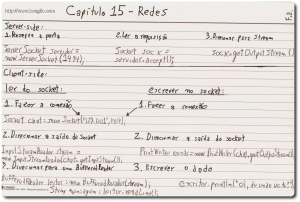 Capítulo 15 - Redes
Server-side:
1. Reserva a porta
2. Ler a requisição
3. Direcionar para Stream
ServerSocket servidor =
new ServerSocket(1414);
Socket sock =
servidor.accept();
sock.getOutputStream()
Client-side:
ler do socket:
escrever no socket:
1. Fazer a conexão
1. Fazer a conexão
Socket chat = new Socket("127.0.0.1", 1414);
2. Direcionar a saída do Socket
2. Direcionar a saída do socket
InputStreamReader stream =
new InputStreamReader(chat.getInputStream());
PrintWriter escritor = new PrintWriter(chat.getOutputStream());
3. Direcionar para um BufferedReader
3. Escrever o dado
BufferedReader leitor = new BufferedReader(stream);
String mensagem = leitor.readLine();
escritor.println("oi, de onde vc tc?");